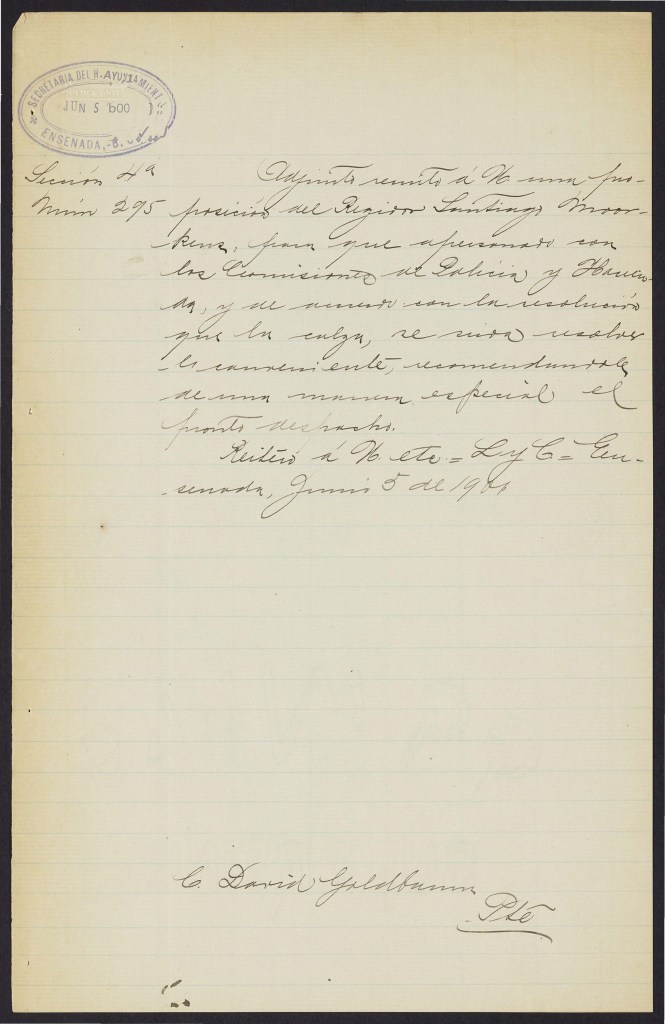 SECRETARIA DEL H. AYUNTAMIENTO
JUN 5 1900
ENSENADA, B.
Sección 4ª
Núm 295
Adjunto remito á V. una pro-
posición del Regidor Santiago Moor-
kens, para que apersonado con
las Comisiones de Policia y Hacien-
da, y de acuerdo con la resolución
que la caiga, se sirva resolver
lo conveniente, recomendandole
de una manera especial el
pronto despacho.
Reitero á V. etc = L y C = En-
senada, Junio 5 de 1900
C. David Goldbaum
Pte